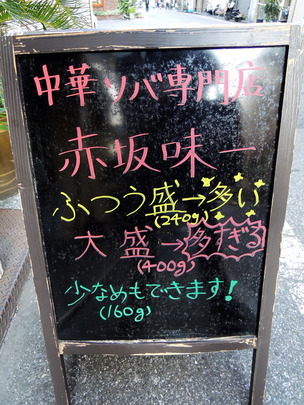 中華ソバ専門店
赤坂味一
ふつう盛→多い
(240g)
大盛→多すぎる
(400g)
少なめもできます!
(160g)